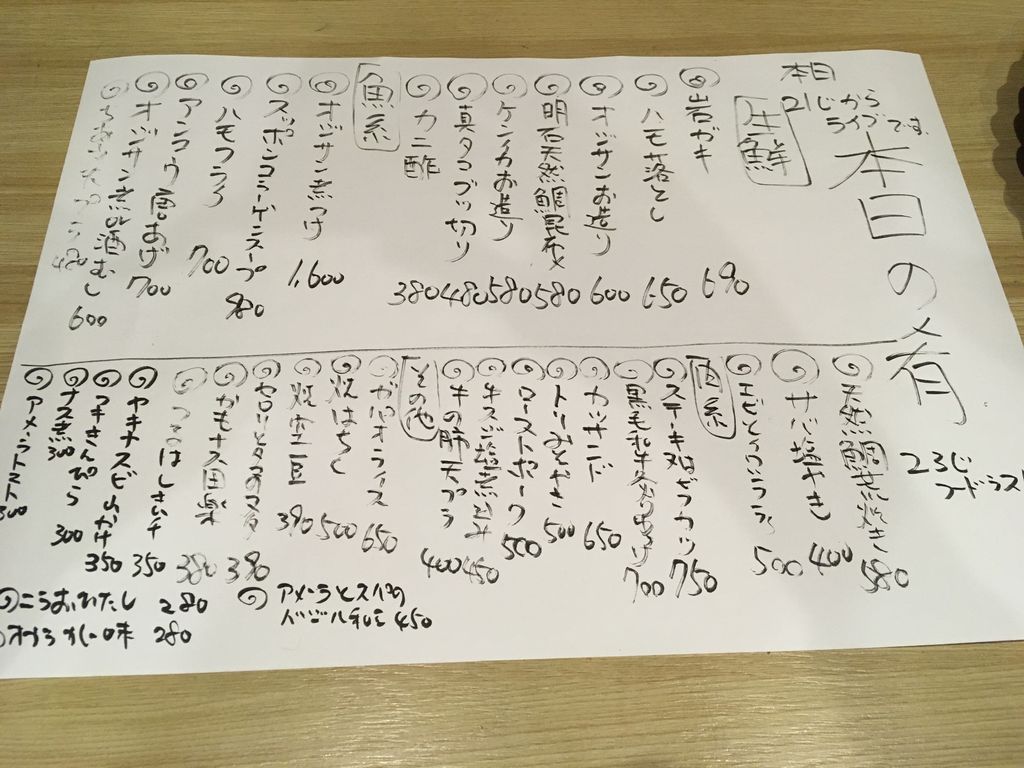 本日
21じから
ライブです。
本日の肴
23じ
フードラスト
生鮮
岩ガキ 690
ハモ落とし 650
オジサンお造り 600
明石天然鯛昆布〆 580
ケンイカお造り 580
真タコブツ切り 480
カニ酢 380
魚系
オジサン煮つけ 1,600
スッポンコラーゲンスープ 980
ハモフライ 700
アンコウ唐あげ 700
オジサン煮or酒むし 600
480
天然鯛荒炊き 580
サバ塩やき 400
エビとイカ 500
肉系
ステーキ 750
黒毛和牛 700
カツサンド 650
トリみそやき 500
ローストポーク 500
牛スジ塩煮込み 450
牛の肺天プラ 400
その他
ガパオライス 650
焼はちく 500
焼空豆 390
セロリとタコのマリネ 390
かもナス田楽 380
350
ヤキナスビ 350
フキきんぴら 300
ナス煮 300
アメーラトマト 300
アメーラとスパの
バジル和え 450
にらおひたし 280
オクラ 280